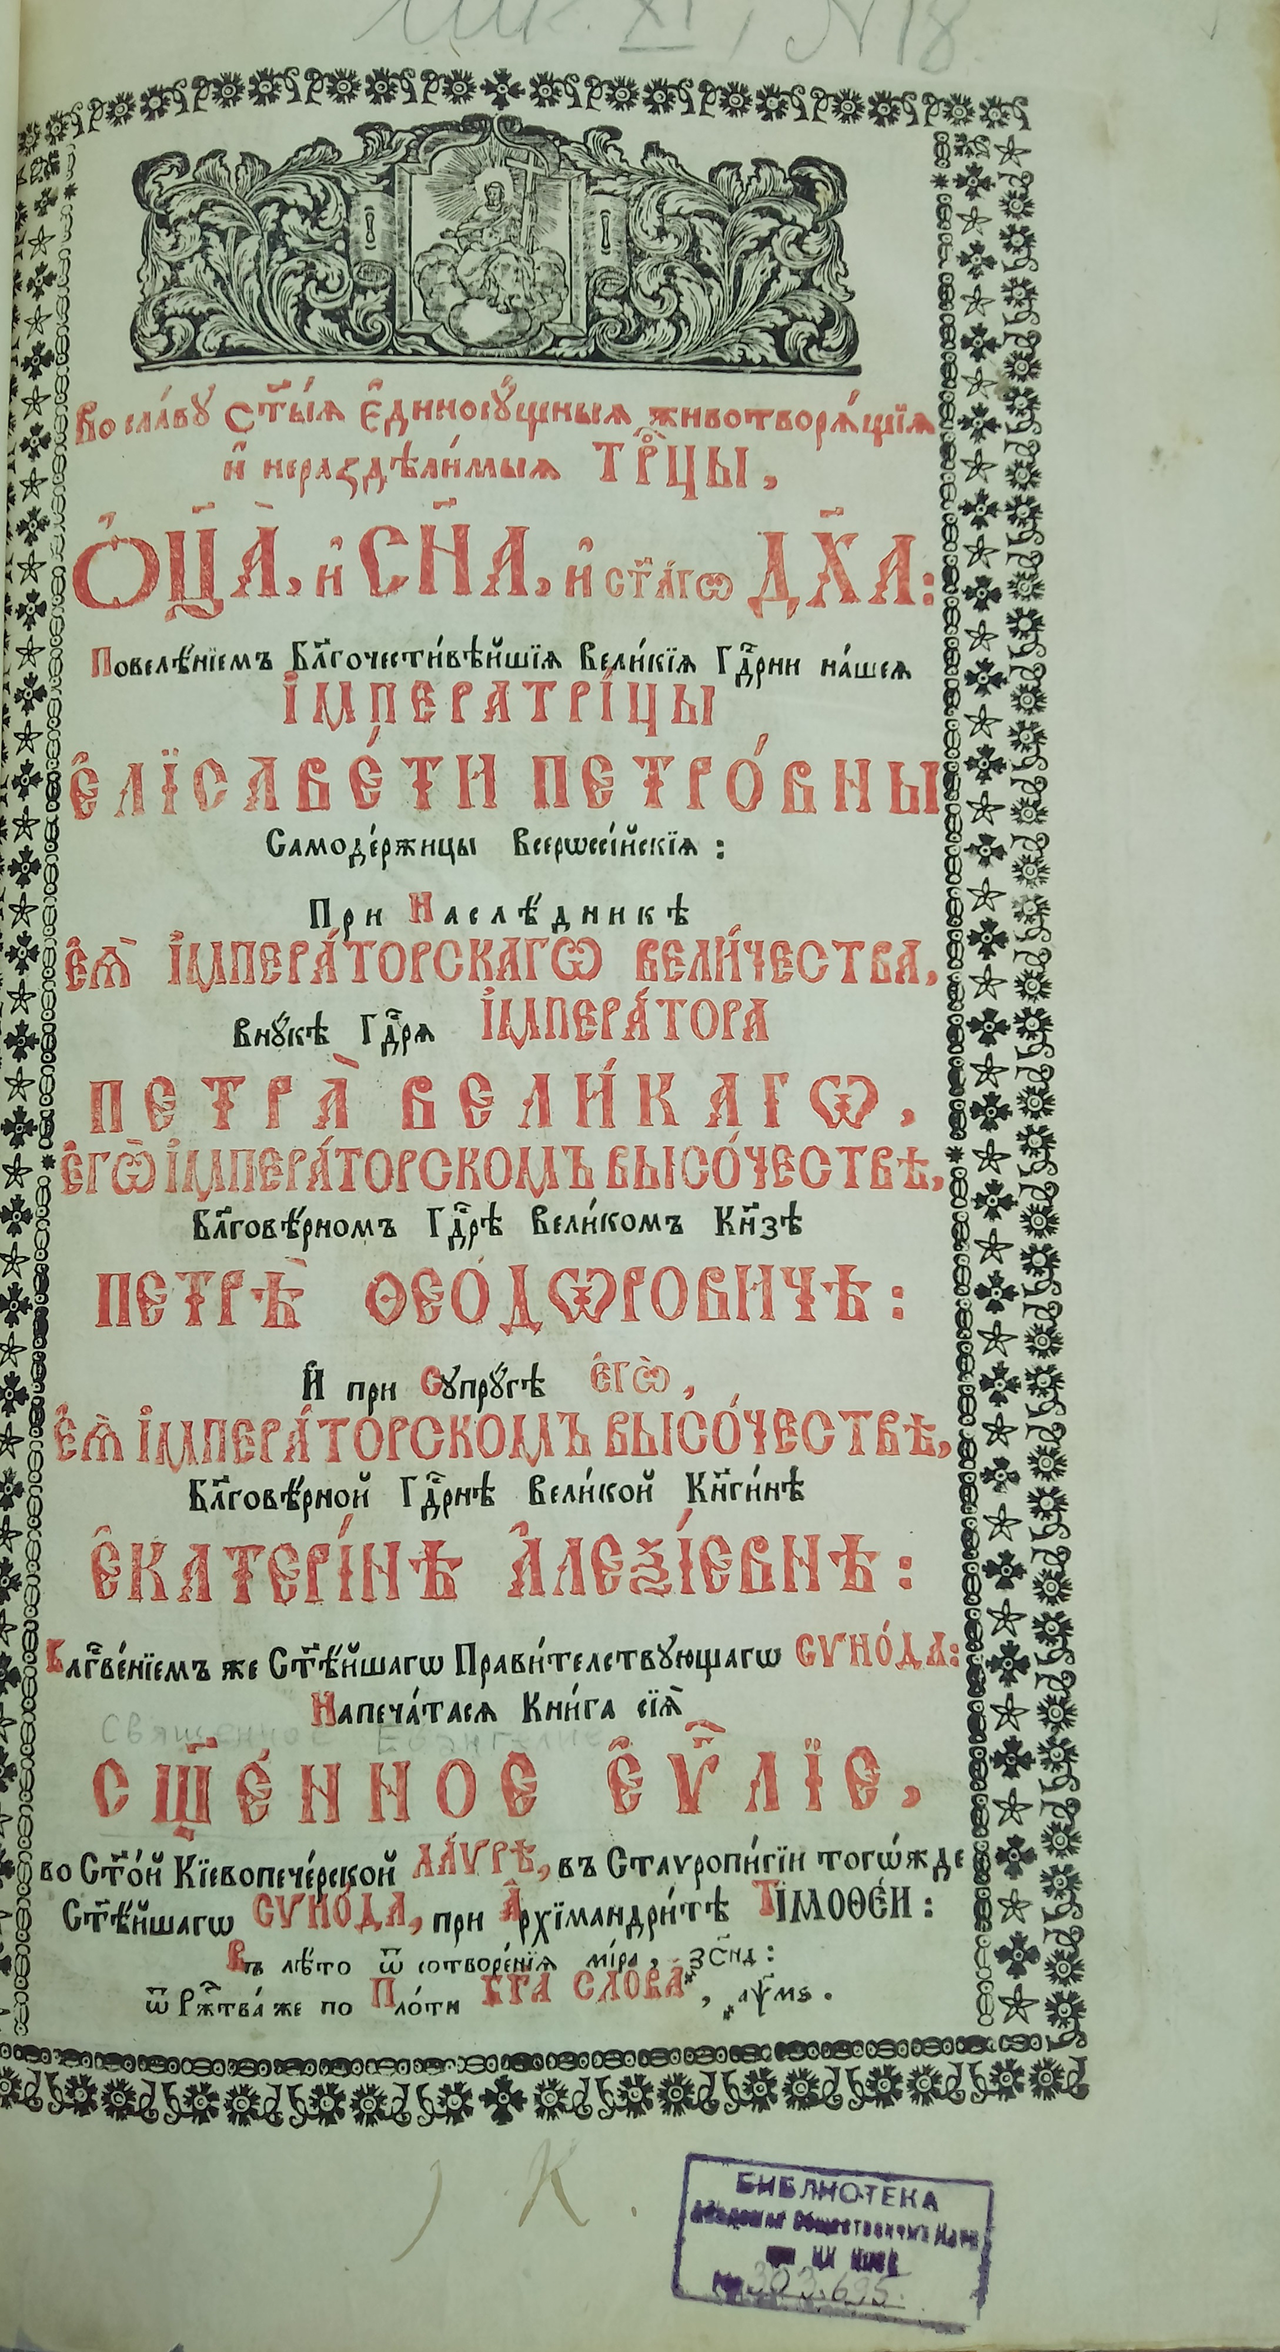 Шк. XI, N 18
Во сла́вꙋ Ст҃ы́ѧ Е҆диносꙋ́щныѧ животворѧ́щїѧ
и҆ нераздѣли́мыѧ ТРⷪ҇ЦЫ,
Ѻ҆Ц҃А̀, и҆ СН҃А, и҆ ст҃а́гѡ ДХ҃А:
Повелѣ́нїемъ Бл҃гочести́вѣйшїѧ Вели́кїѧ Гдⷭ҇рни на́шеѧ
І҆МПЕРАТРІ́ЦЫ
Е҆ЛІСАВЕ́ТИ ПЕТРО́ВНЫ
Самоде́ржицы Всерѡссі́йскїѧ:
При Наслѣ́дникѣ
Е҆Ѧ̀ І҆МПЕРА́ТОРСКАГѠ ВЕЛИ́ЧЕСТВА,
внꙋ́кѣ Гдⷭ҇рѧ І҆МПЕРА́ТОРА
ПЕТРА̀ ВЕЛИ́КАГѠ,
Е҆ГѠ̀ І҆МПЕРА́ТОРСКОМЪ ВЫСО́ЧЕСТВѢ,
Бл҃говѣ́рномъ Гдⷭ҇рѣ Вели́комъ Кн҃зѣ
ПЕТРѢ̀ ѲЕО́ДѠРОВИЧѢ:
И҆ при Сꙋпрꙋ́гѣ є҆гѡ̀,
Е҆Ѧ̀ І҆МПЕРА́ТОРСКОМЪ ВЫСО́ЧЕСТВѢ,
Бл҃говѣ́рной Гдⷭ҇рнѣ Вели́кой Кн҃ги́нѣ
Е҆КАТЕРІ́НѢ А҆ЛЕѮІ́ЕВНѢ:
Блгⷭ҇ве́нїемъ же Ст҃ѣ́йшагѡ Прави́телствꙋющагѡ СѴНО́ДА:
Напеча́тасѧ Кни́га сїѧ̀
Священное Евангелие
СЩ҃Е́ННОЕ Е҆Ѵⷢ҇ЛЇЕ,
во Ст҃о́й Кїевопече́рской ЛА́ѴРѢ, въ Стаѵропи́гїи тогѡ́жде
Ст҃ѣ́йшагѡ СѴНО́ДА, при А҆рхїмандри́тѣ ТІМОѲЕ́И:
Въ лѣ́то ѿ сотворе́нїѧ мі́ра, ҂зс҃нд:
ѿ Ржⷭ҇тва́ же по Пло́ти БГ҃А СЛО́ВА, ҂аѱ҃мѕ.
К.
БИБЛИОТЕКА
Академии Общественных Наук
ЦК
№ 303.695.